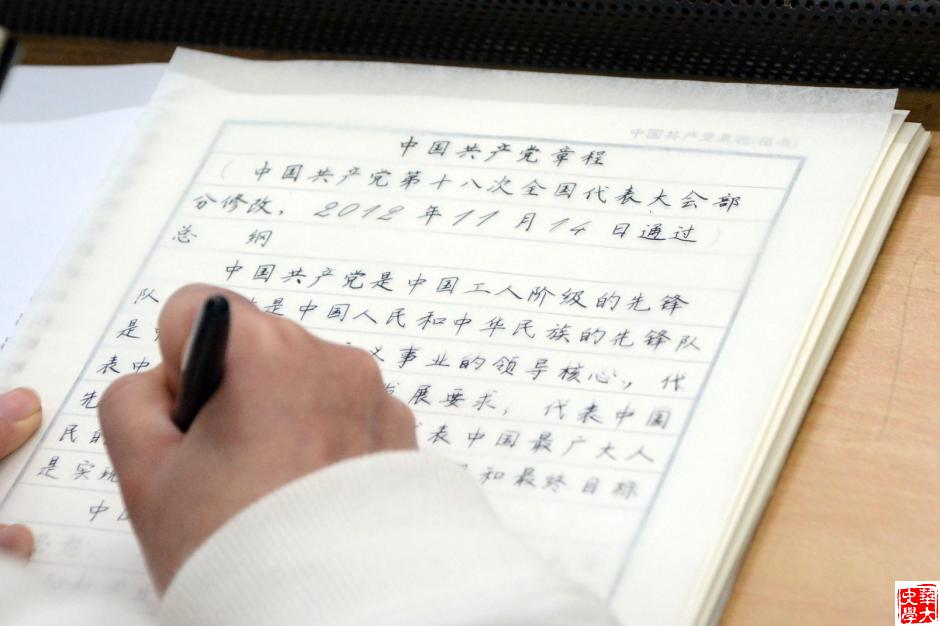 中国共产党章程(楷书)
中国共产党章程
(中国共产党第十八次全国代表大会部
分修改，2012年11月14日通过)
总 纲
中国共产党是中国工人阶级的先锋
队 是中国人民和中华民族的先锋队
是 义事业的领导核心，代
表中 发展要求，代表中国
先 代表中国最广大人
民的 和最终目标
是实现
中国
华大
史学